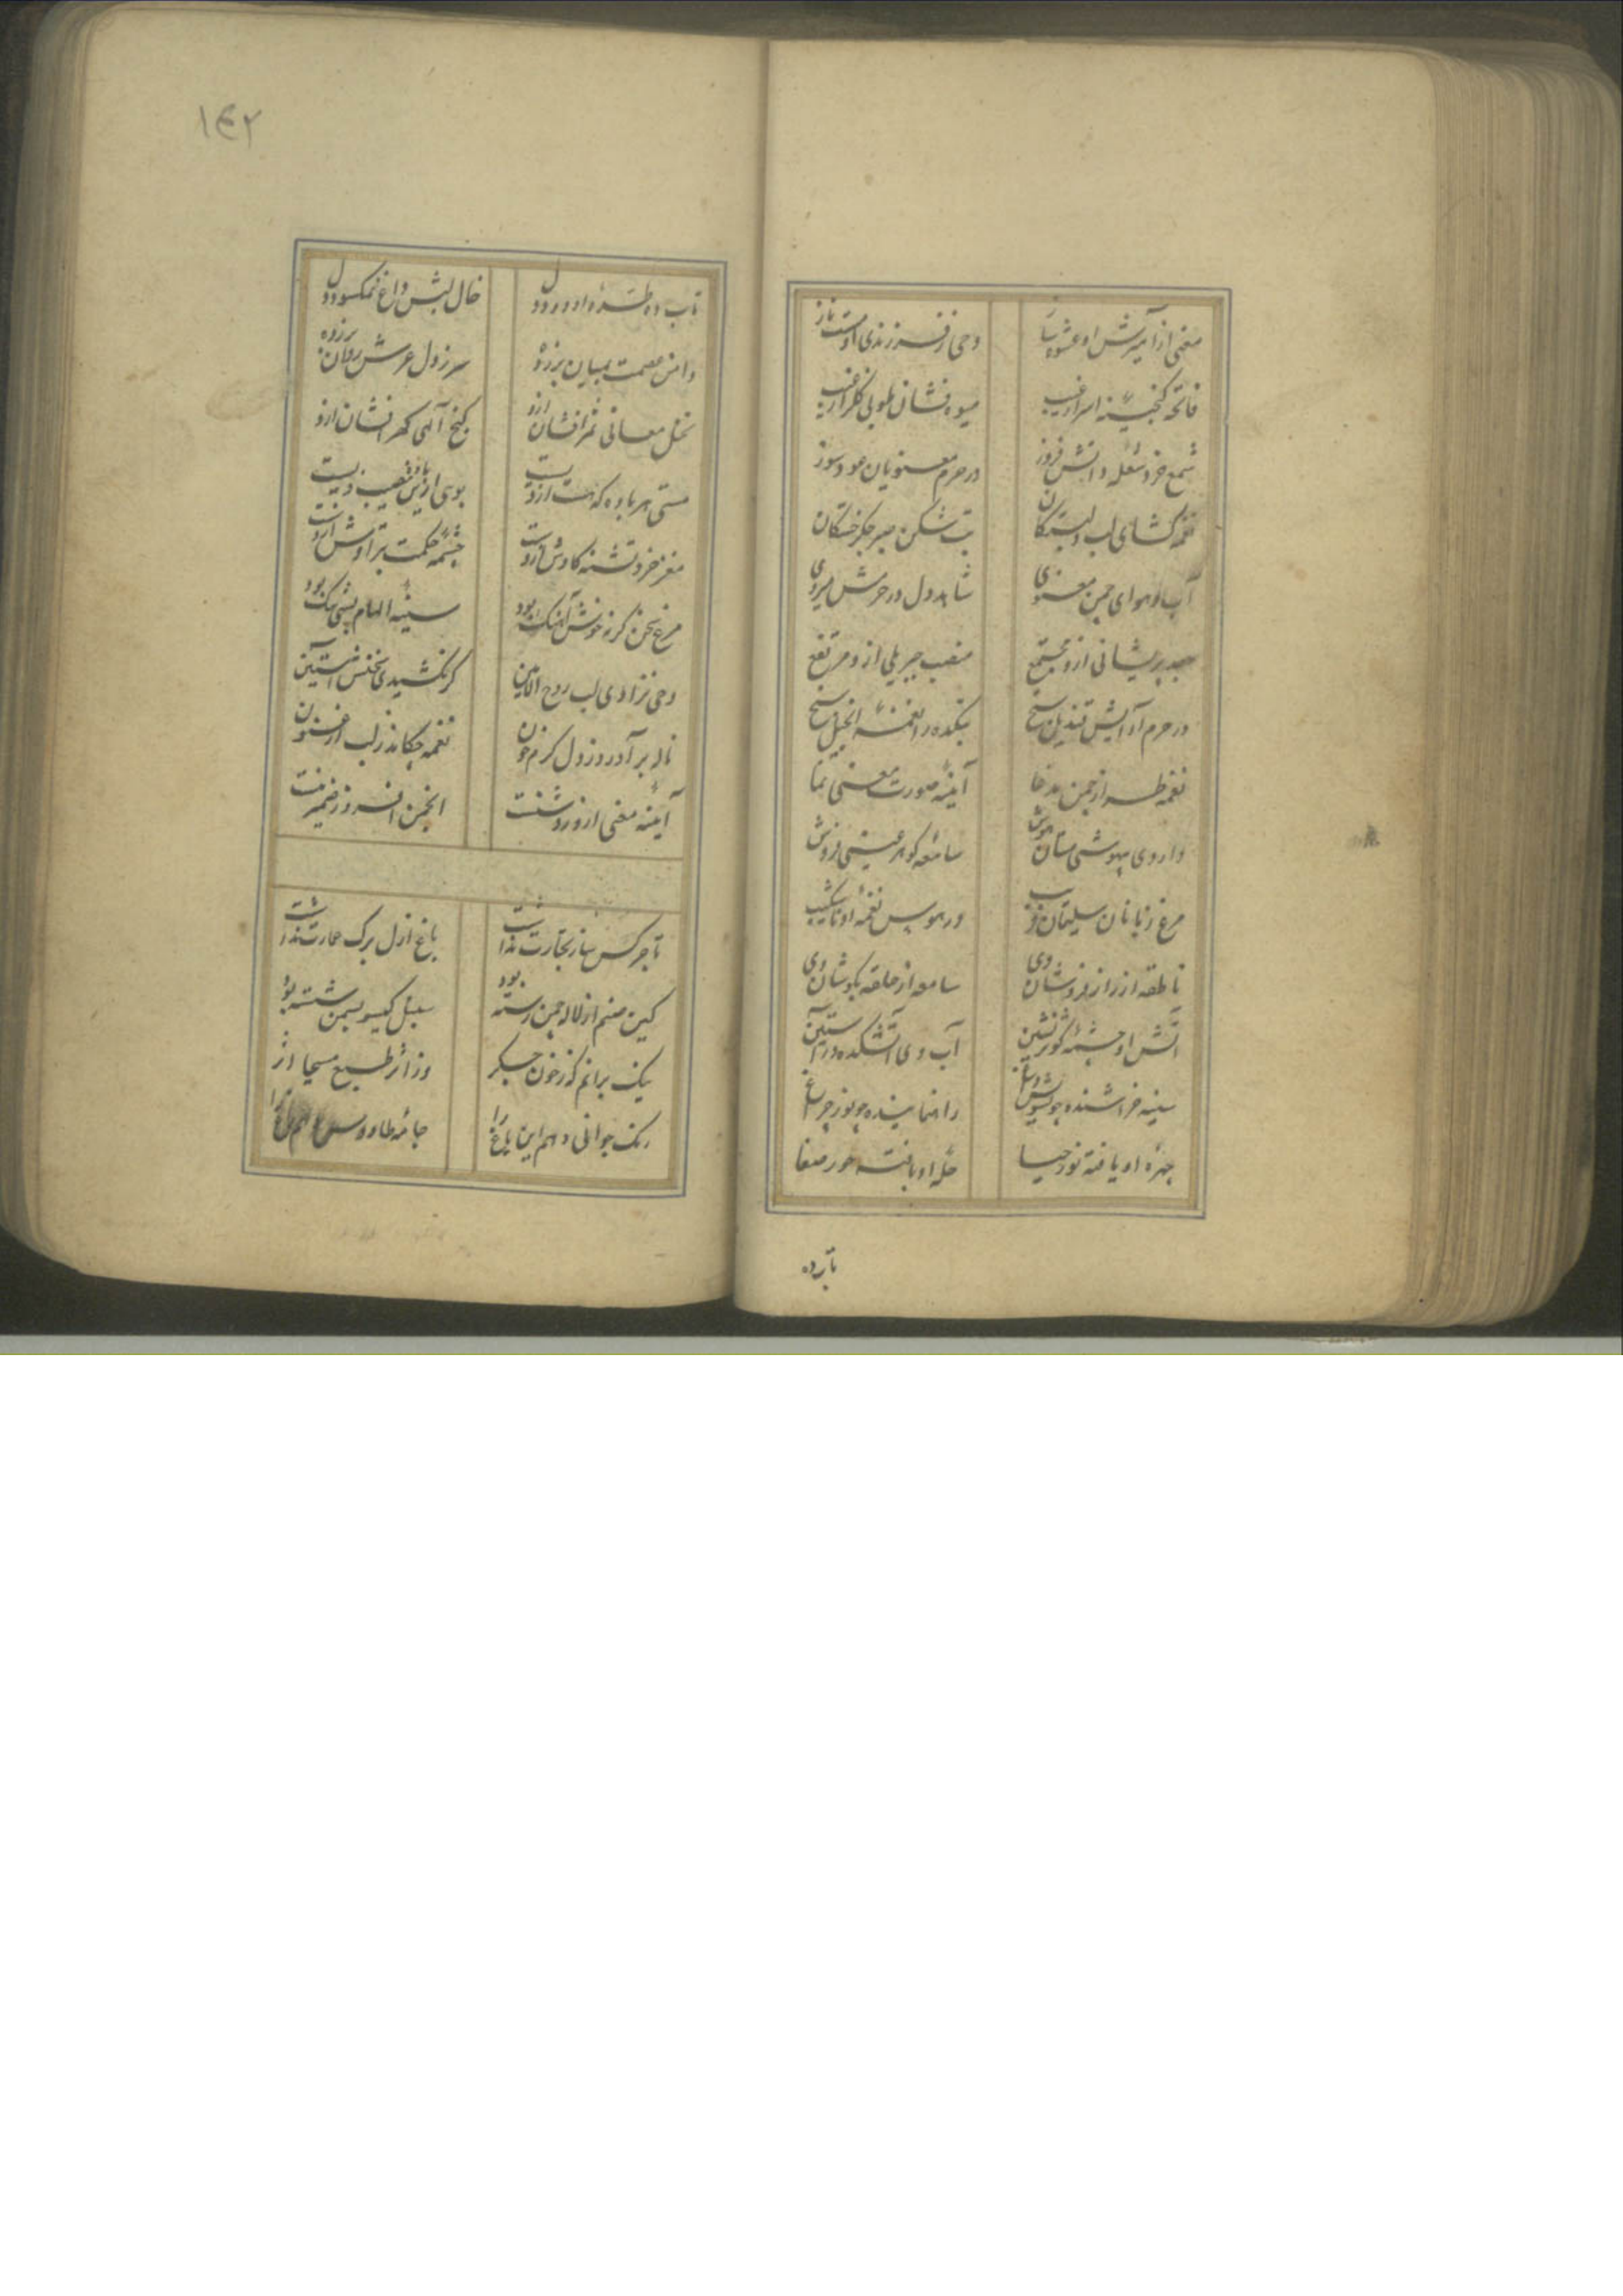 معنی از آمیزش او عشوه ساز
وحی ز فرزندی اوست ناز
فاتحه گنجینه اسرار غیب
میوه فشان طوبی گلزار غیب
شمع خرد شعله دانش فروز
در حرم معنویان عود سوز
نغمه گشای لب دلبستگان
تب شکن صبر جگر خستگان
آب و هوای چمن معنوی
شاهد دل در حرمش میروی
جعد پریشانی ازو مجتمع
منصب جبریلی ازو مرتفع
در حرم آرایش قندیل سنج
بتکده را نغمه انجیل سنج
نغمه طراز چمن مدعا
آینه صورت معنی نما
داروی بیهوشی مستان هوش
سامعه گوهر عیسی فروش
مرغ زبانان سلیمان فریب
در هوس نغمه او ناشکیب
ناطقه از راز فروشان وی
سامعه از حلقه بگوشان وی
آتش او چشمه کوثر نشین
آب وی آتشکده در آستین
سینه خراشنده چو
راه نماینده چو نور چراغ
چهره او یافته نور حیا
حله او بافته حور صفا
تاب ده
١٤٢
تاب ده طره او دود دل
خال لبش داغ نمکسود دل
دامن عصمت بمیان برزده
سر ز دل عرش روان برزده
نخل معانی ثمر افشان ازو
گنج الهی گهر افشان ازو
مستی هر باده که هست ازویست
بوی ازین باده نصیب ویست
مغز خرد تشنه کاوش ازوست
چشمه حکمت بتراوش ازوست
مرغ سخن گرنه خوش آهنگ بود
سینه الهام پی تنگ بود
وحی نزادی لب روح الامین
گر نکشیدی سخنش آستین
ناله برآورد ز دل گرم خون
نغمه چکاند ز لب ارغنون
آینه معنی ازو روشنست
انجمن افروز ضمیر منست
تاجر کس ساز تجارت نداشت
باغ ازل برگ عمارت نداشت
کین صنم از لاله چمن رسته بود
سنبل گیسو بسمن شسته بود
نیک برانم که ز خون جگر
وز اثر طبع مسیحا اثر
رنگ جوانی دهم این باغ را
جامه طاووس دهم زاغ را